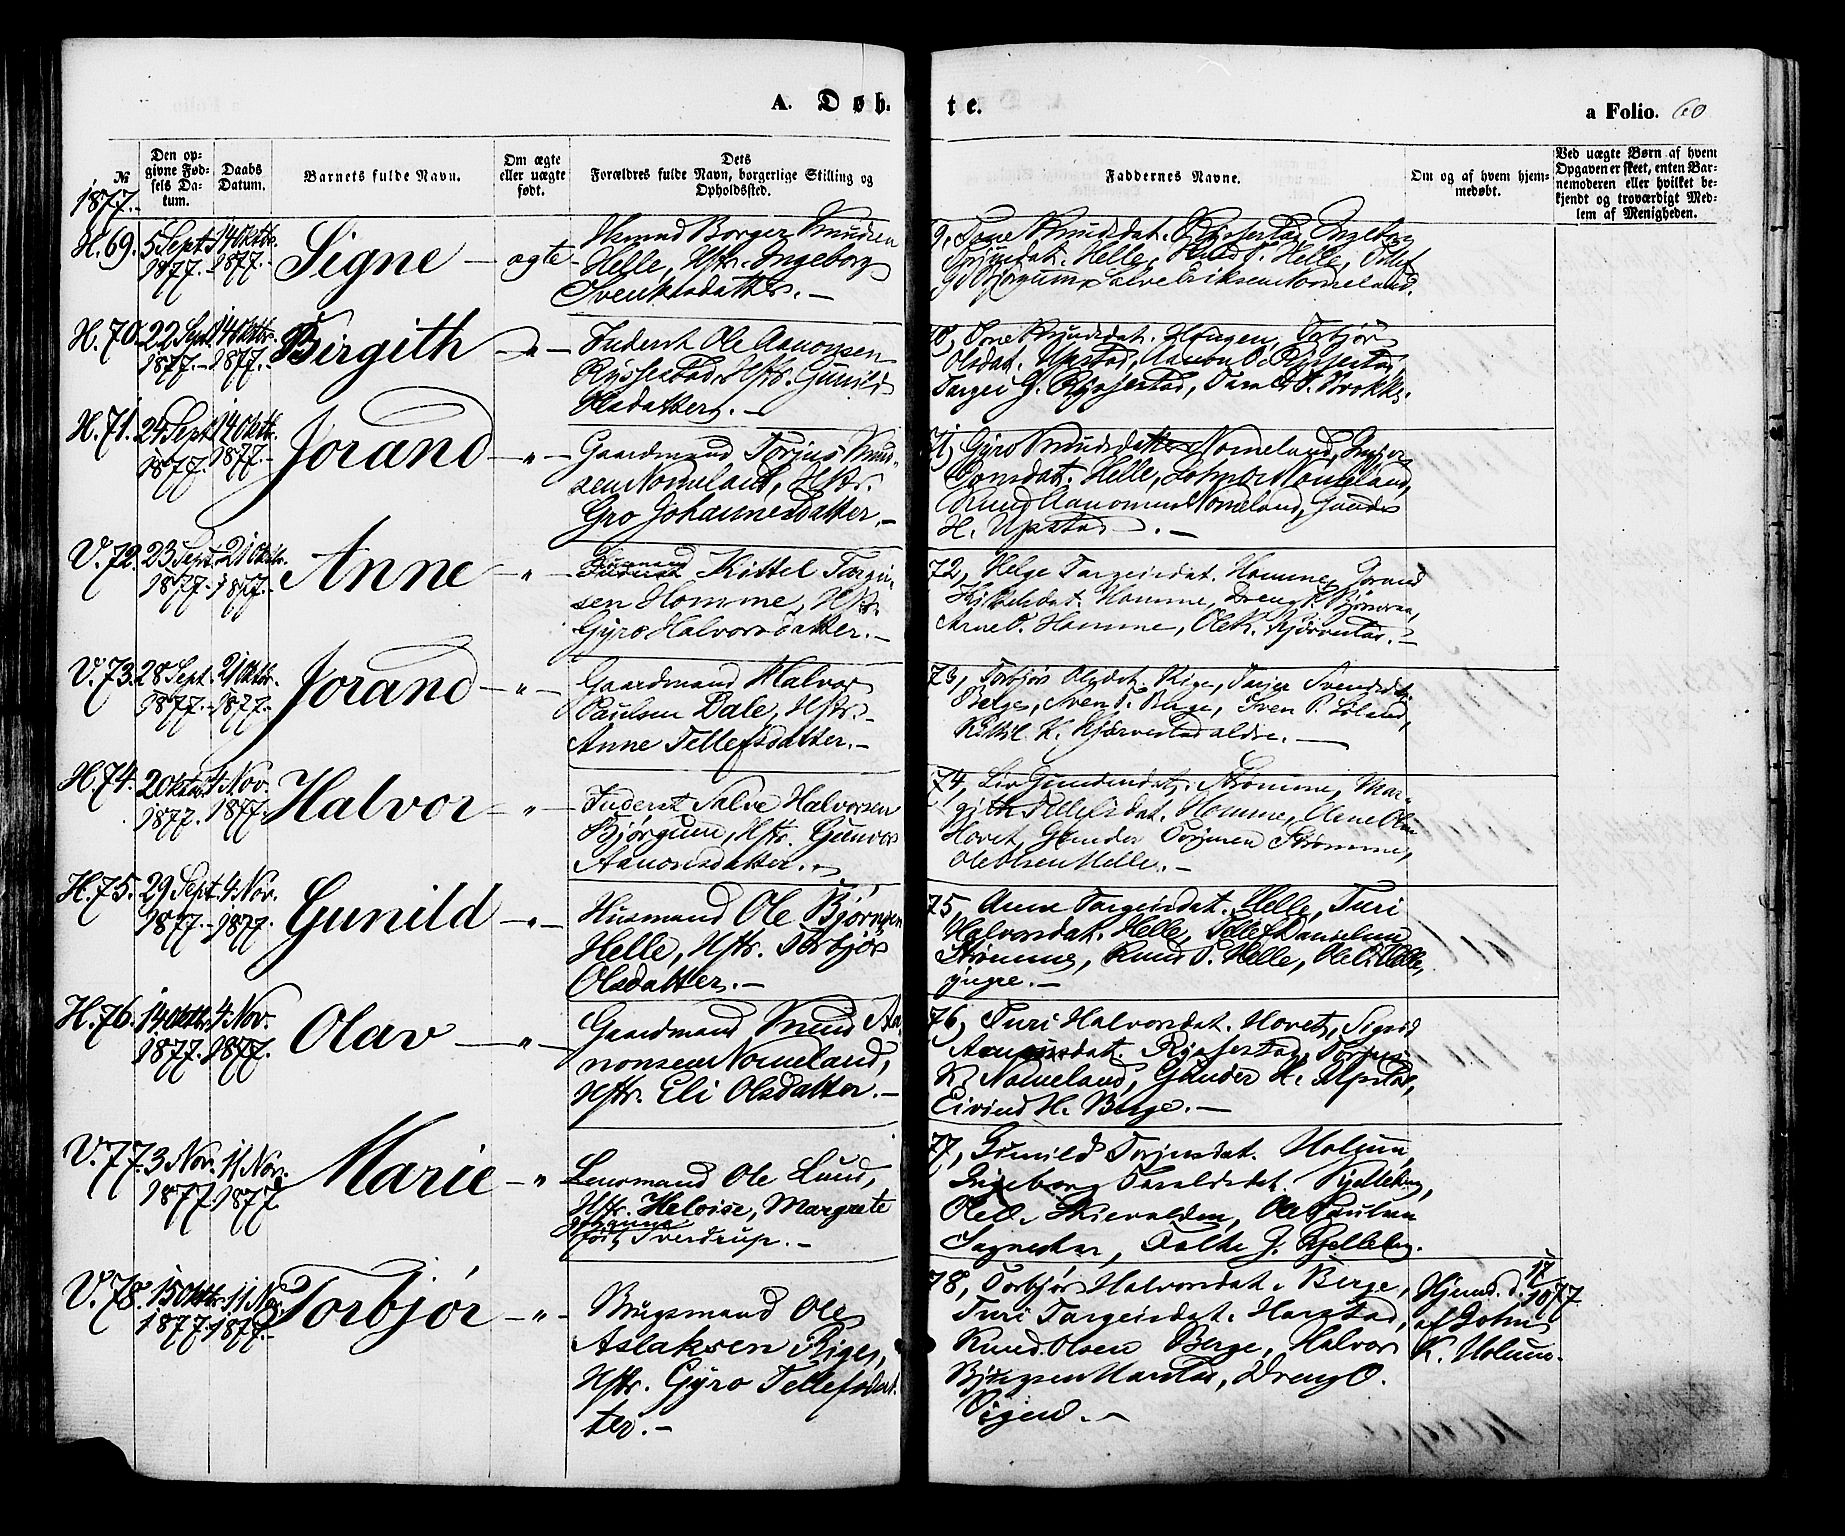 A. Døb. te. a Folio. 60
№
Den opgivne Fødsels Datum.
Daabs Datum.
Barnets fulde Navn.
Om ægte eller uægte født.
Dets Forældres fulde Navn, borgerlige Stilling og Opholdssted.
Faddernes Navne.
Om og af hvem hjemmedøbt.
Ved uægte Børn af hvem Opgaven er skeet, enten Barnemoderen eller hvilket bekjendt og troværdigt Medlem af Menigheden.
1877.
H. 69. 5 Sept. 1877. 14 Oktbr. 1877. Signe — ægte —
Husmand Borger Knudsen
Helle, Hstr. Ingeborg
Svenkesdatter. —
Tone Knudsdat. Rysestad, Ingebor
Helle, Helle,
Bjørgum, Salve Eriksen Nomeland.
H. 70. 22 Sept. 1877. 14 Oktbr. 1877. Birgith — " —
Inderst Ole Aanonsen
Rysestad, Hstr. Gunild
Olsdatter. —
Knudsdat. Haugen, Torbjør
Olsdat. Upstad, Aanon O. Rysestad,
Targei G. Rysestad, Brokke.
H. 71. 24 Sept. 1877. 14 Oktbr. 1877. Jorand — " —
Gaardmand Torjus Knud-
sen Nomeland, Hstr.
Gro Johannesdatter. —
71, Gyro Knudsdatter Nomeland,
Helle, Nomeland,
Knud Aanonsen Nomeland, Gunder
H. Upstad. —
V. 72. 23 Sept. 1877. 21 Oktbr. 1877. Anne — " —
Inderst Kittel Targei-
sen Homme, Hstr.
Gyro Halvorsdatter. —
72, Helge Targeisdat. Homme, Jorand
Kittelsdat. Homme, Dreng
Arne O. Homme, Ole K. Kjørvestad. —
V. 73. 28 Sept. 1877. 21 Oktbr. 1877. Jorand — " —
Gaardmand Halvor
Paulsen Dale, Hstr.
Anne Tellefsdatter. —
73, Torbjør Olsdat. Rige, Tarjer Svensdat.
Berge, Sven T. Berge, Sven P. Løland,
Kittil K. Kjørvestad ældre. —
H. 74. 2 Oktbr. 1877. 4 Nov. 1877. Halvor — " —
Inderst Salve Halvorsen
Bjørgum, Hstr. Gunvor
Aanonsdatter. —
74, Liv Gundersdat. Strømme, Mar-
gith Tellefsdat. Homme,
Hovet, Gunder Torjusen Strømme,
Ole Olsen Helle. —
H. 75. 29 Sept. 1877. 4 Nov. 1877. Gunild — " —
Husmand Ole Bjørnsen
Helle, Hstr. Torbjør
Olsdatter. —
75, Anne Targeisdat. Helle, Turi
Halvorsdat. Helle, Tellef Danielsen
Strømme, Knud T. Helle, Ole O. Helle,
yngre. —
H. 76. 14 Oktbr. 1877. 4 Nov. 1877. Olav — " —
Gaardmand Knud Aa-
nonsen Nomeland,
Hstr. Eli Olsdatter. —
76, Turi Halvorsdat. Hovet, Sigrid
Aanonsdat. Rysestad, Torjus
K. Nomeland, Gunder H. Upstad,
Eivind H. Berge. —
V. 77. 3 Nov. 1877. 11 Nov. 1877. Marie — "
Lensmand Ole Lund,
Hstr. Heloise, Margrete
født Sverdrup. —
77, Gunild Torjusdat. Holum,
Ingeborg Taraldsdat. Kjelleberg,
Ole O. Skievalden, Ole Paulsen
Sagneskar, Folke J. Kjelleberg.
V. 78. 15 Oktbr. 1877. 11 Nov. 1877. Torbjør — " —
Brugsmand Ole
Aslaksen Rige,
Hstr. Gyro Tellefsdat-
ter. —
78, Torbjør Halvorsdat. Berge,
Turi Targeisdat. Harstad,
Knud Olsen Berge, Halvor
Harstad, Dreng O.
Vigen. —
Hjemd. d. 17/10 77
af John
K. Holum.